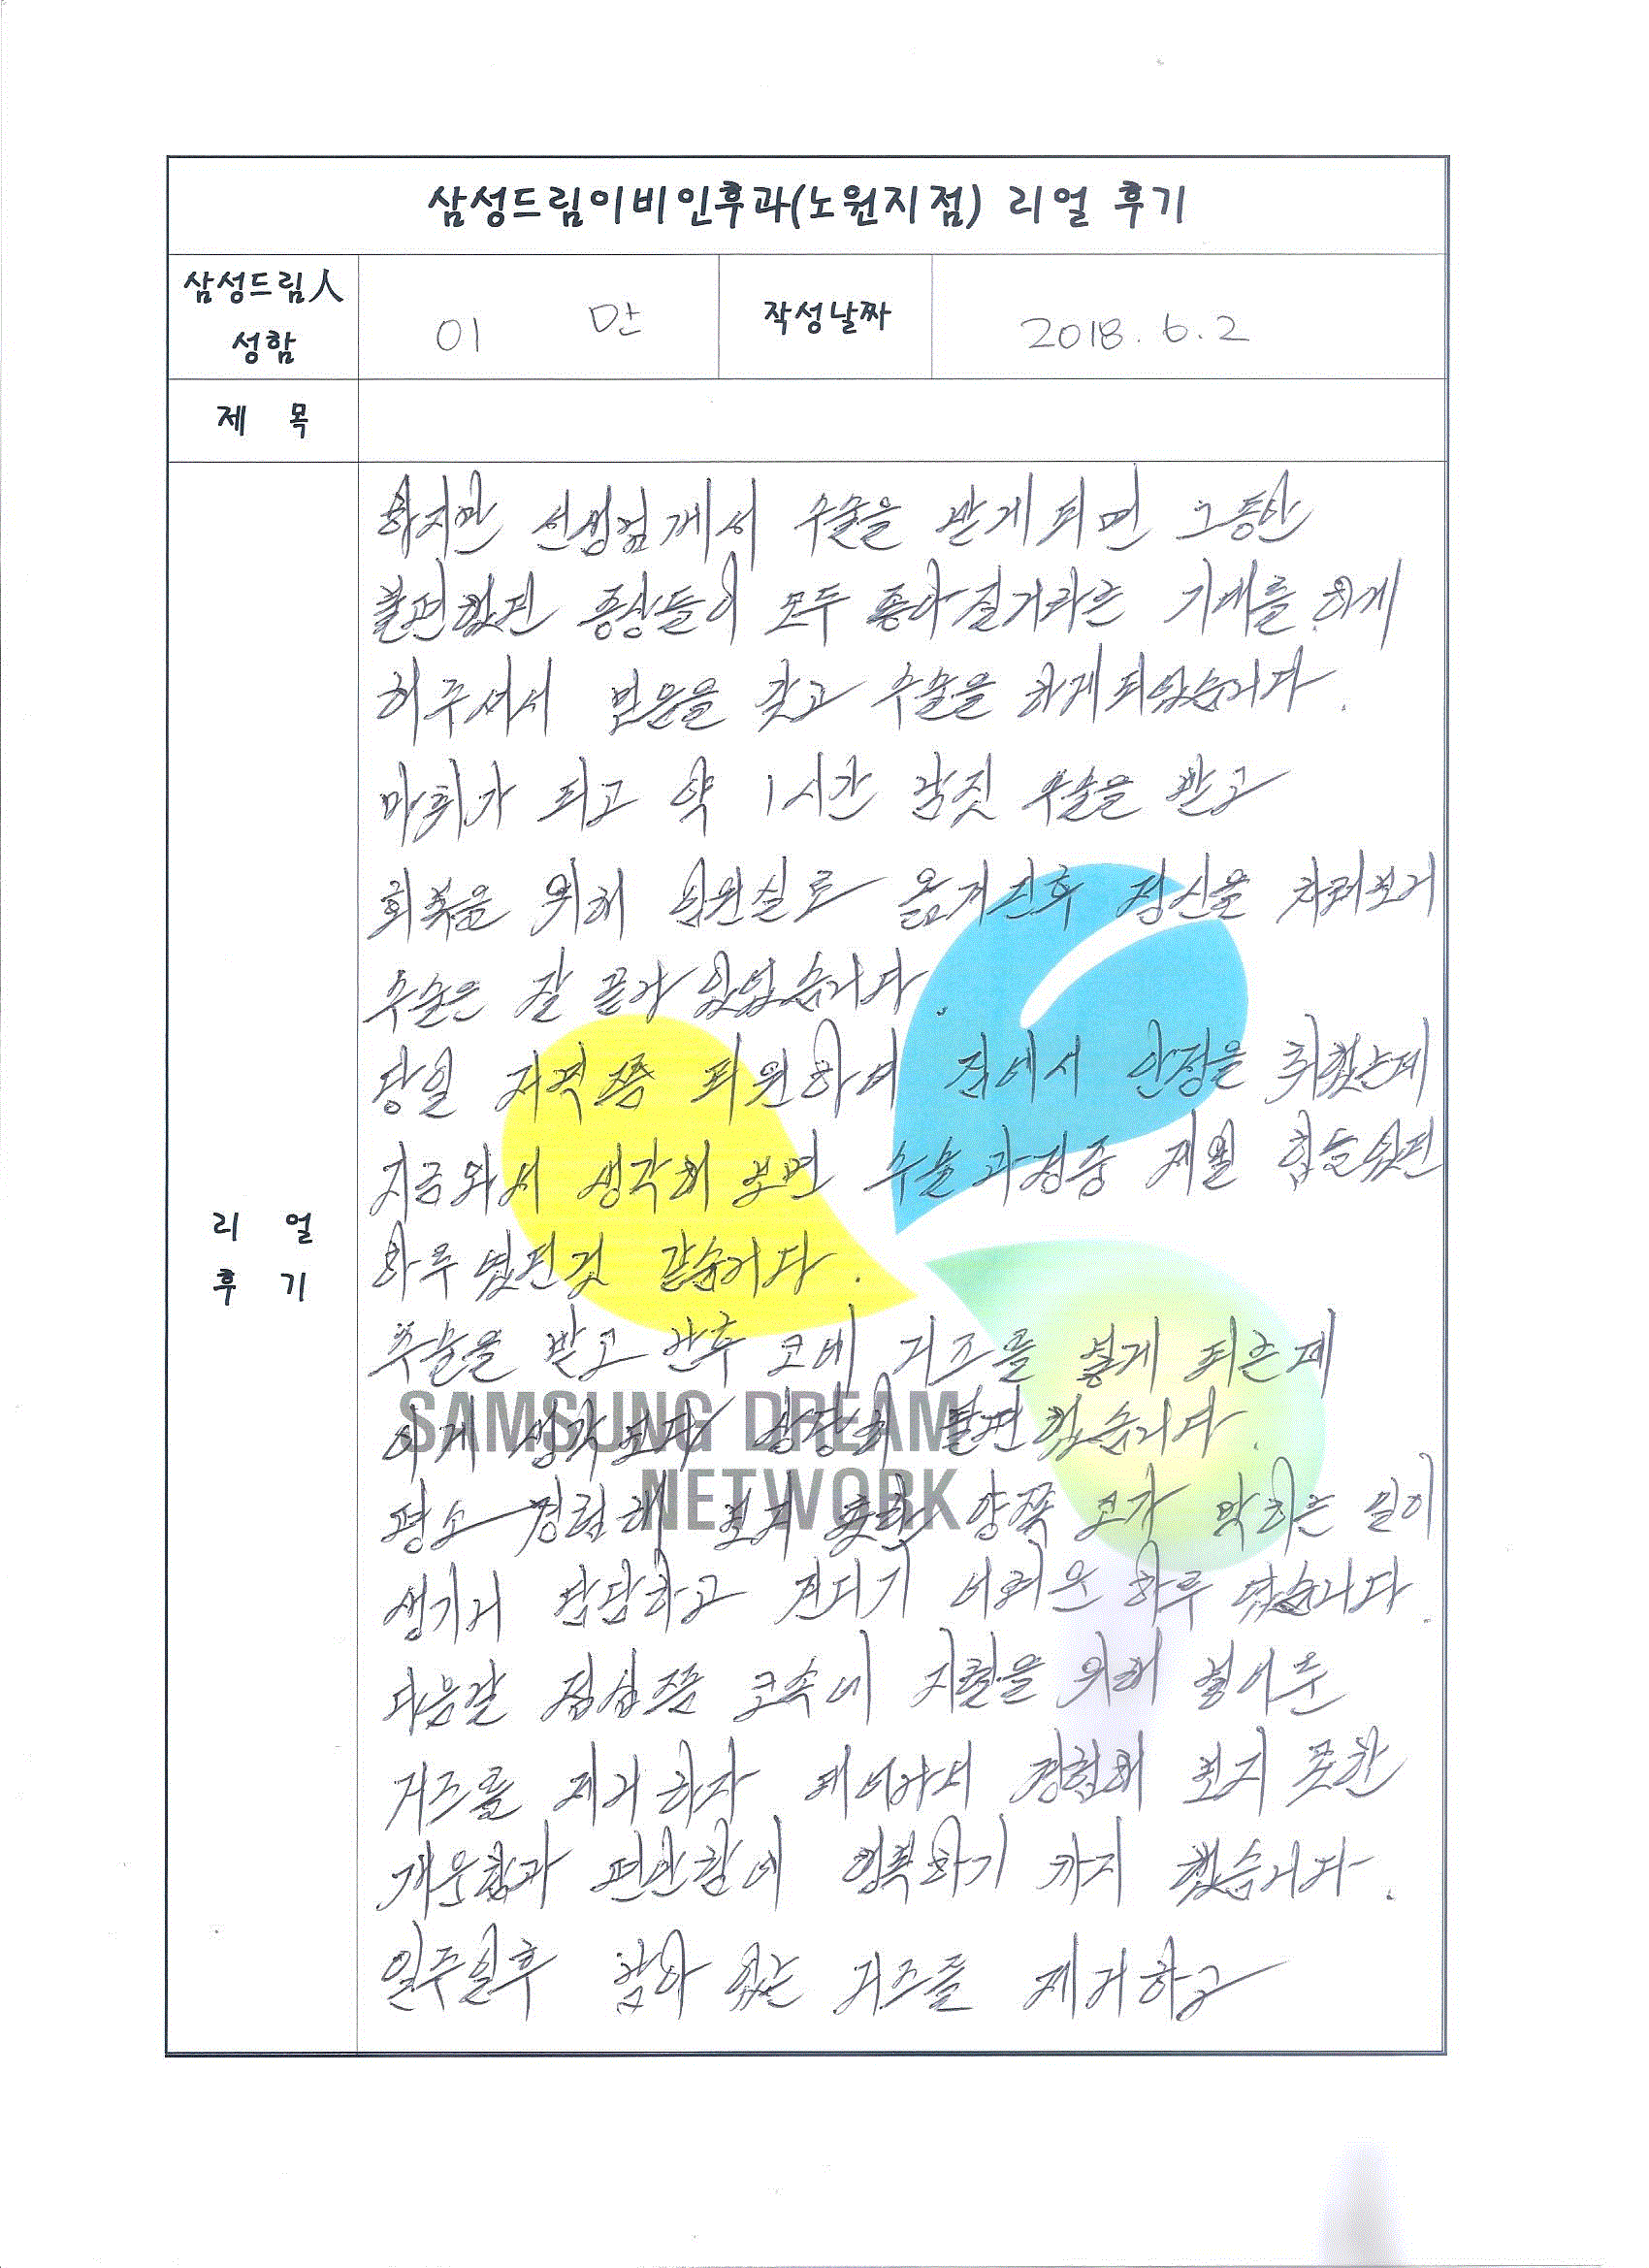 삼성드림이비인후과(노원지점) 리얼 후기
삼성드림人
성함
이 만
작성날짜
2018. 6. 2
제 목
하지만 선생님께서 수술을 받게 되면 그동안
불편했던 증상들이 모두 좋아질거라는 기대를 하게
해주셔서 믿음을 갖고 수술을 하게 되었습니다.
마취가 되고 약 1시간 남짓 수술을 받고
회복을 위해 입원실로 옮겨진후 정신을 차려보니
수술은 잘 끝나 있었습니다.
당일 저녁쯤 퇴원하여 집에서 안정을 취했는데
지금와서 생각해 보면 수술 과정중 제일 힘들었던
하루 였던것 같습니다.
수술을 받고 난후 코에 거즈를 넣게 되는데
이게 생각보다 상당히 불편 했습니다.
평소 경험해 보지 못한 양쪽 코가 막히는 일이
생기니 답답하고 견디기 어려운 하루 였습니다.
다음날 점심쯤 코속에 지혈을 위해 넣어둔
거즈를 제거 하자 태어나서 경험해 보지 못한
개운함과 편안함에 행복하기 까지 했습니다.
일주일후 남아 있는 거즈를 제거하고
리 얼
후 기
SAMSUNG DREAM
NETWORK